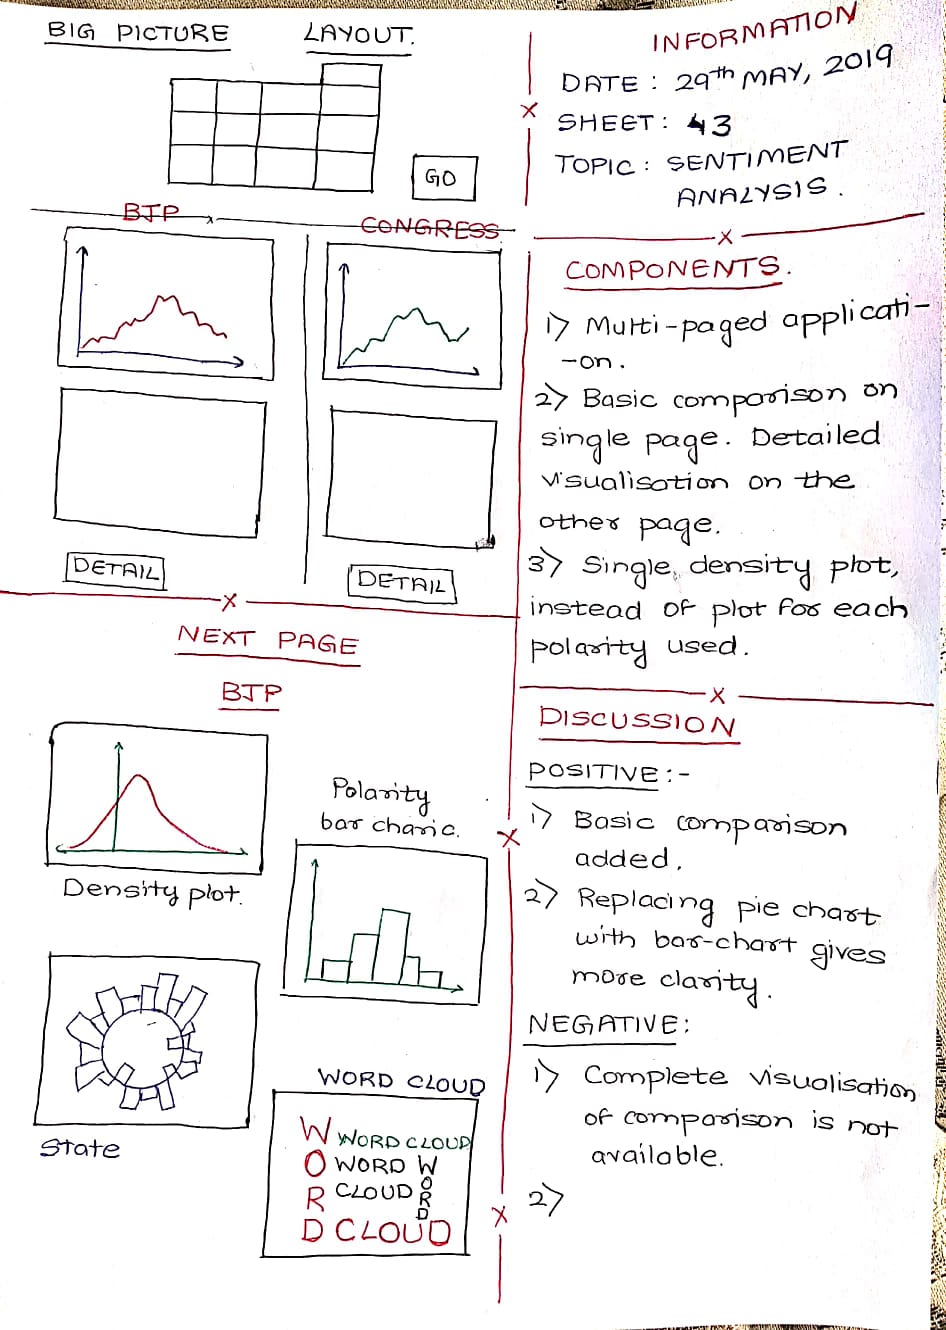 BIG PICTURE LAYOUT.
GO
BJP
CONGRESS
DETAIL
DETAIL
NEXT PAGE
BJP
Density plot.
Polarity
bar charic.
State
WORD CLOUD
WORD
WORD CLOUD
WORD
CLOUD
WORD
CLOUD
INFORMATION
DATE : 29th MAY, 2019
SHEET : 43
TOPIC : SENTIMENT
ANALYSIS.
COMPONENTS.
1) Multi-paged applicati-
-on.
2) Basic comparison on
single page. Detailed
visualisation on the
other page.
3) Single, density plot,
instead of plot for each
polarity used.
DISCUSSION
POSITIVE :-
1) Basic comparison
added.
2) Replacing pie chart
with bar-chart gives
more clarity.
NEGATIVE :
1) Complete visualisation
of comparison is not
available.
2)